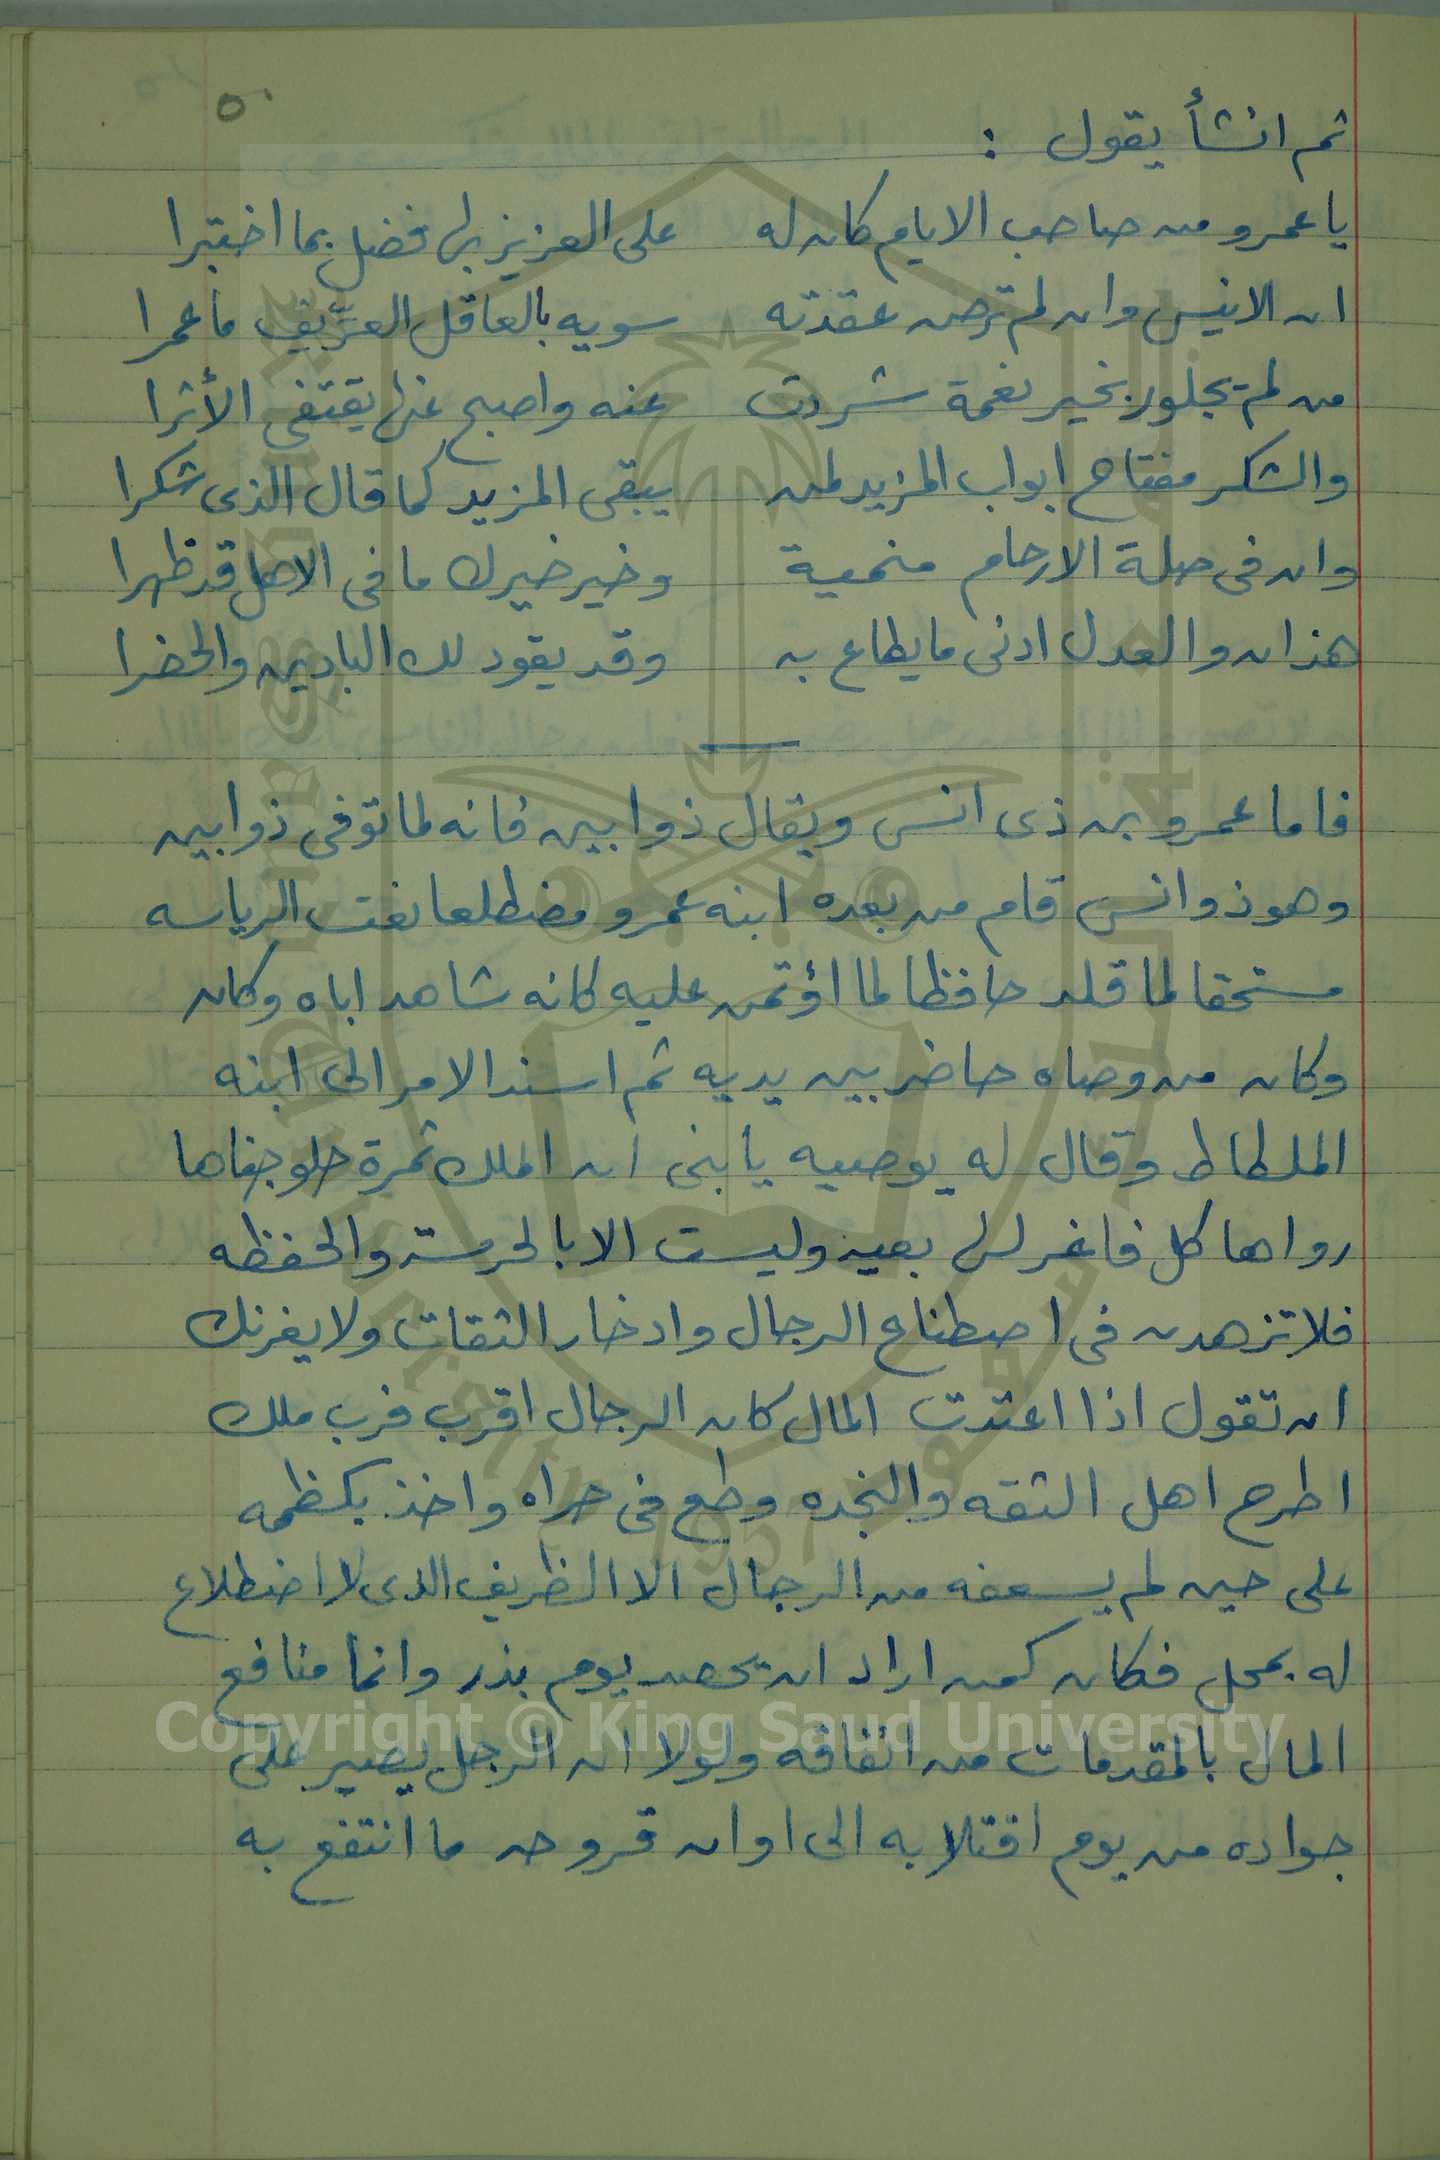 ٥٠
ثم انشأ يقول :
يا عمرو من صاحب الايام كان له على العزيز بها فضل بما اختبرا
ان الانيس وان لم ترض عقدته سويه بالعاقل العرّيف ما عمرا
من لم يجاور بخير نعمة شردت عنه واصبح عنها يقتفى الأثرا
والشكر مفتاح ابواب المزيد لمن يبقى المزيد كما قال الذى شكرا
وان فى صلة الارحام منمية وخير خيرك ما فى الاهل قد ظهرا
هذان والعدل ادنى ما يطاع به وقد يقود لك البادين والحضرا
فاما عمرو بن ذى انس ويقال ذو ابين فانه لما توفى ذو ابين
وهو ذو انس قام من بعده ابنه عمرو مضطلعا بفت الرياسه
مستحقا لما قلد حافظا لما اؤتمن عليه كانه شاهد اباه وكان
وكان من وصاه حاضر بين يديه ثم اسند الامر الى ابنه
الملطاط وقال له يوصيه يابنى ان الملك ثمرة حلو جناها
رواها كل فاغر لها بعينه وليست الا بالحرسة والحفظه
فلا تزهدن فى اصطناع الرجال وادخار الثقات ولا يغرنك
ان تقول اذا اعتدت المال كان الرجال اقرب فرب ملك
اطرح اهل الثقه والنجده وطمع فى حراه واخذ بكظمه
على حين لم يسعفه من الرجال الا الظريف الذى لا اضطلاع
له بمحل فكان كمن اراد ان يحصد يوم بذر وانما منافع
المال بالمقدمات من انفاقه ولولا ان الرجل يصير على
جواده من يوم افتلا به الى اوان قروحه ما انتفع به
Copyright © King Saud University